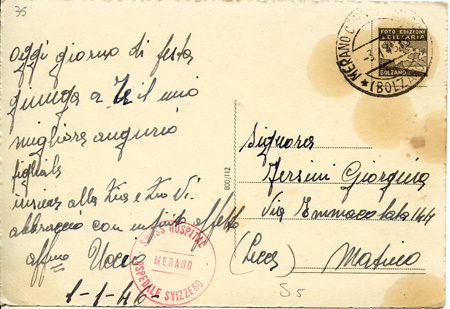 35
Oggi giorno di festa
giunga a Te il mio
migliore augurio
figliale
insieme alla Zia e Zio Vi
abbraccio con infinito affetto
affmo
1-1-46-
SWISS HOSPITAL
MERANO
OSPEDALE SVIZZERO
800/112
MERANO
(BOLZ
FOTO EDIZIONI
SCILIARIA
BOLZANO
Signora
Giorgina
Via Immacolata 44
(Lecce) Matino
S5